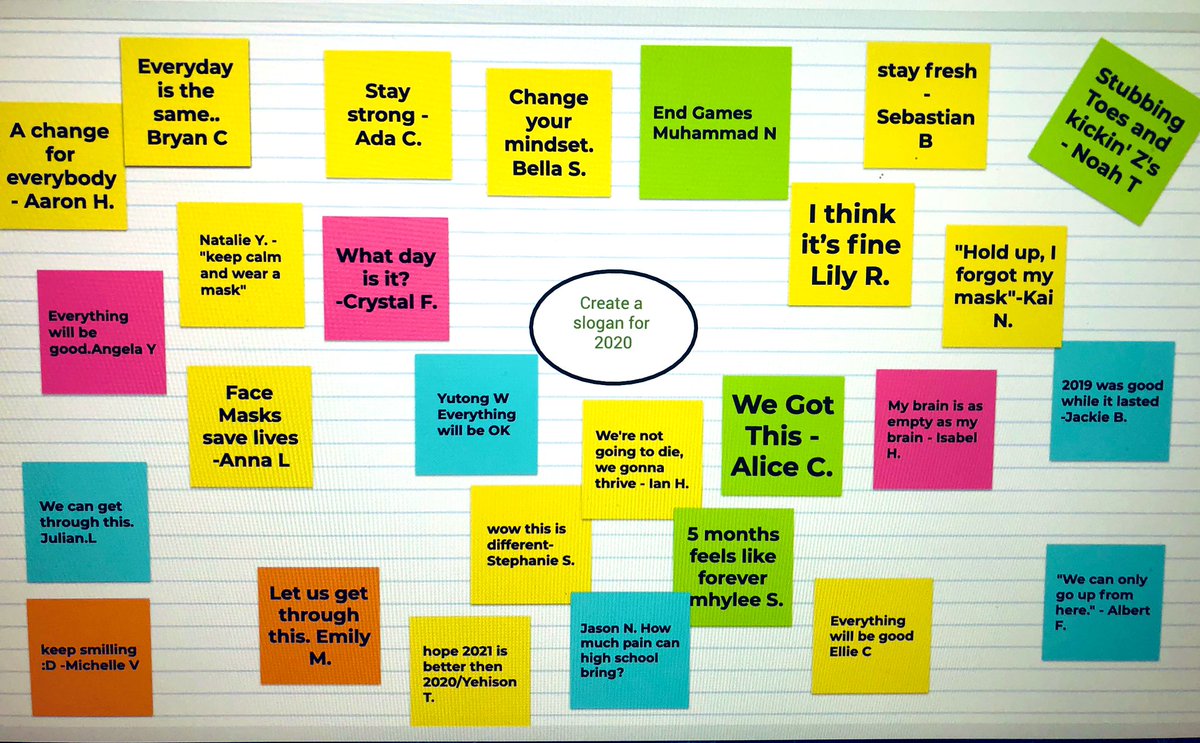 A change
for
everybody
- Aaron H.
Everyday
is the
same..
Bryan C
Stay
strong -
Ada C.
Change
your
mindset.
Bella S.
End Games
Muhammad N
stay fresh
-
Sebastian
B
Stubbing
Toes and
kickin' Z's
- Noah T
Natalie Y. -
"keep calm
and wear a
mask"
What day
is it?
-Crystal F.
I think
it’s fine
Lily R.
"Hold up, I
forgot my
mask"-Kai
N.
Everything
will be
good.Angela Y
Create a
slogan for
2020
Face
Masks
save lives
-Anna L
Yutong W
Everything
will be OK
We're not
going to die,
we gonna
thrive - Ian H.
We Got
This -
Alice C.
My brain is as
empty as my
brain - Isabel
H.
2019 was good
while it lasted
-Jackie B.
We can get
through this.
Julian.L
wow this is
different-
Stephanie S.
5 months
feels like
forever
mhylee S.
"We can only
go up from
here." - Albert
F.
keep smilling
:D -Michelle V
Let us get
through
this. Emily
M.
hope 2021 is
better then
2020/Yehison
T.
Jason N. How
much pain can
high school
bring?
Everything
will be good
Ellie C